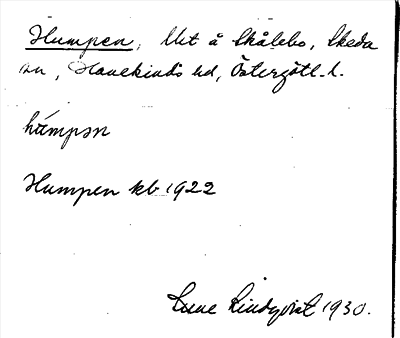 Humpen, Utt å Skålebo, Skeda
sn, Hanekinds hd, Östergötl. l.
húmpən
Humpen kb 1922
Sune Lindqvist 1930.